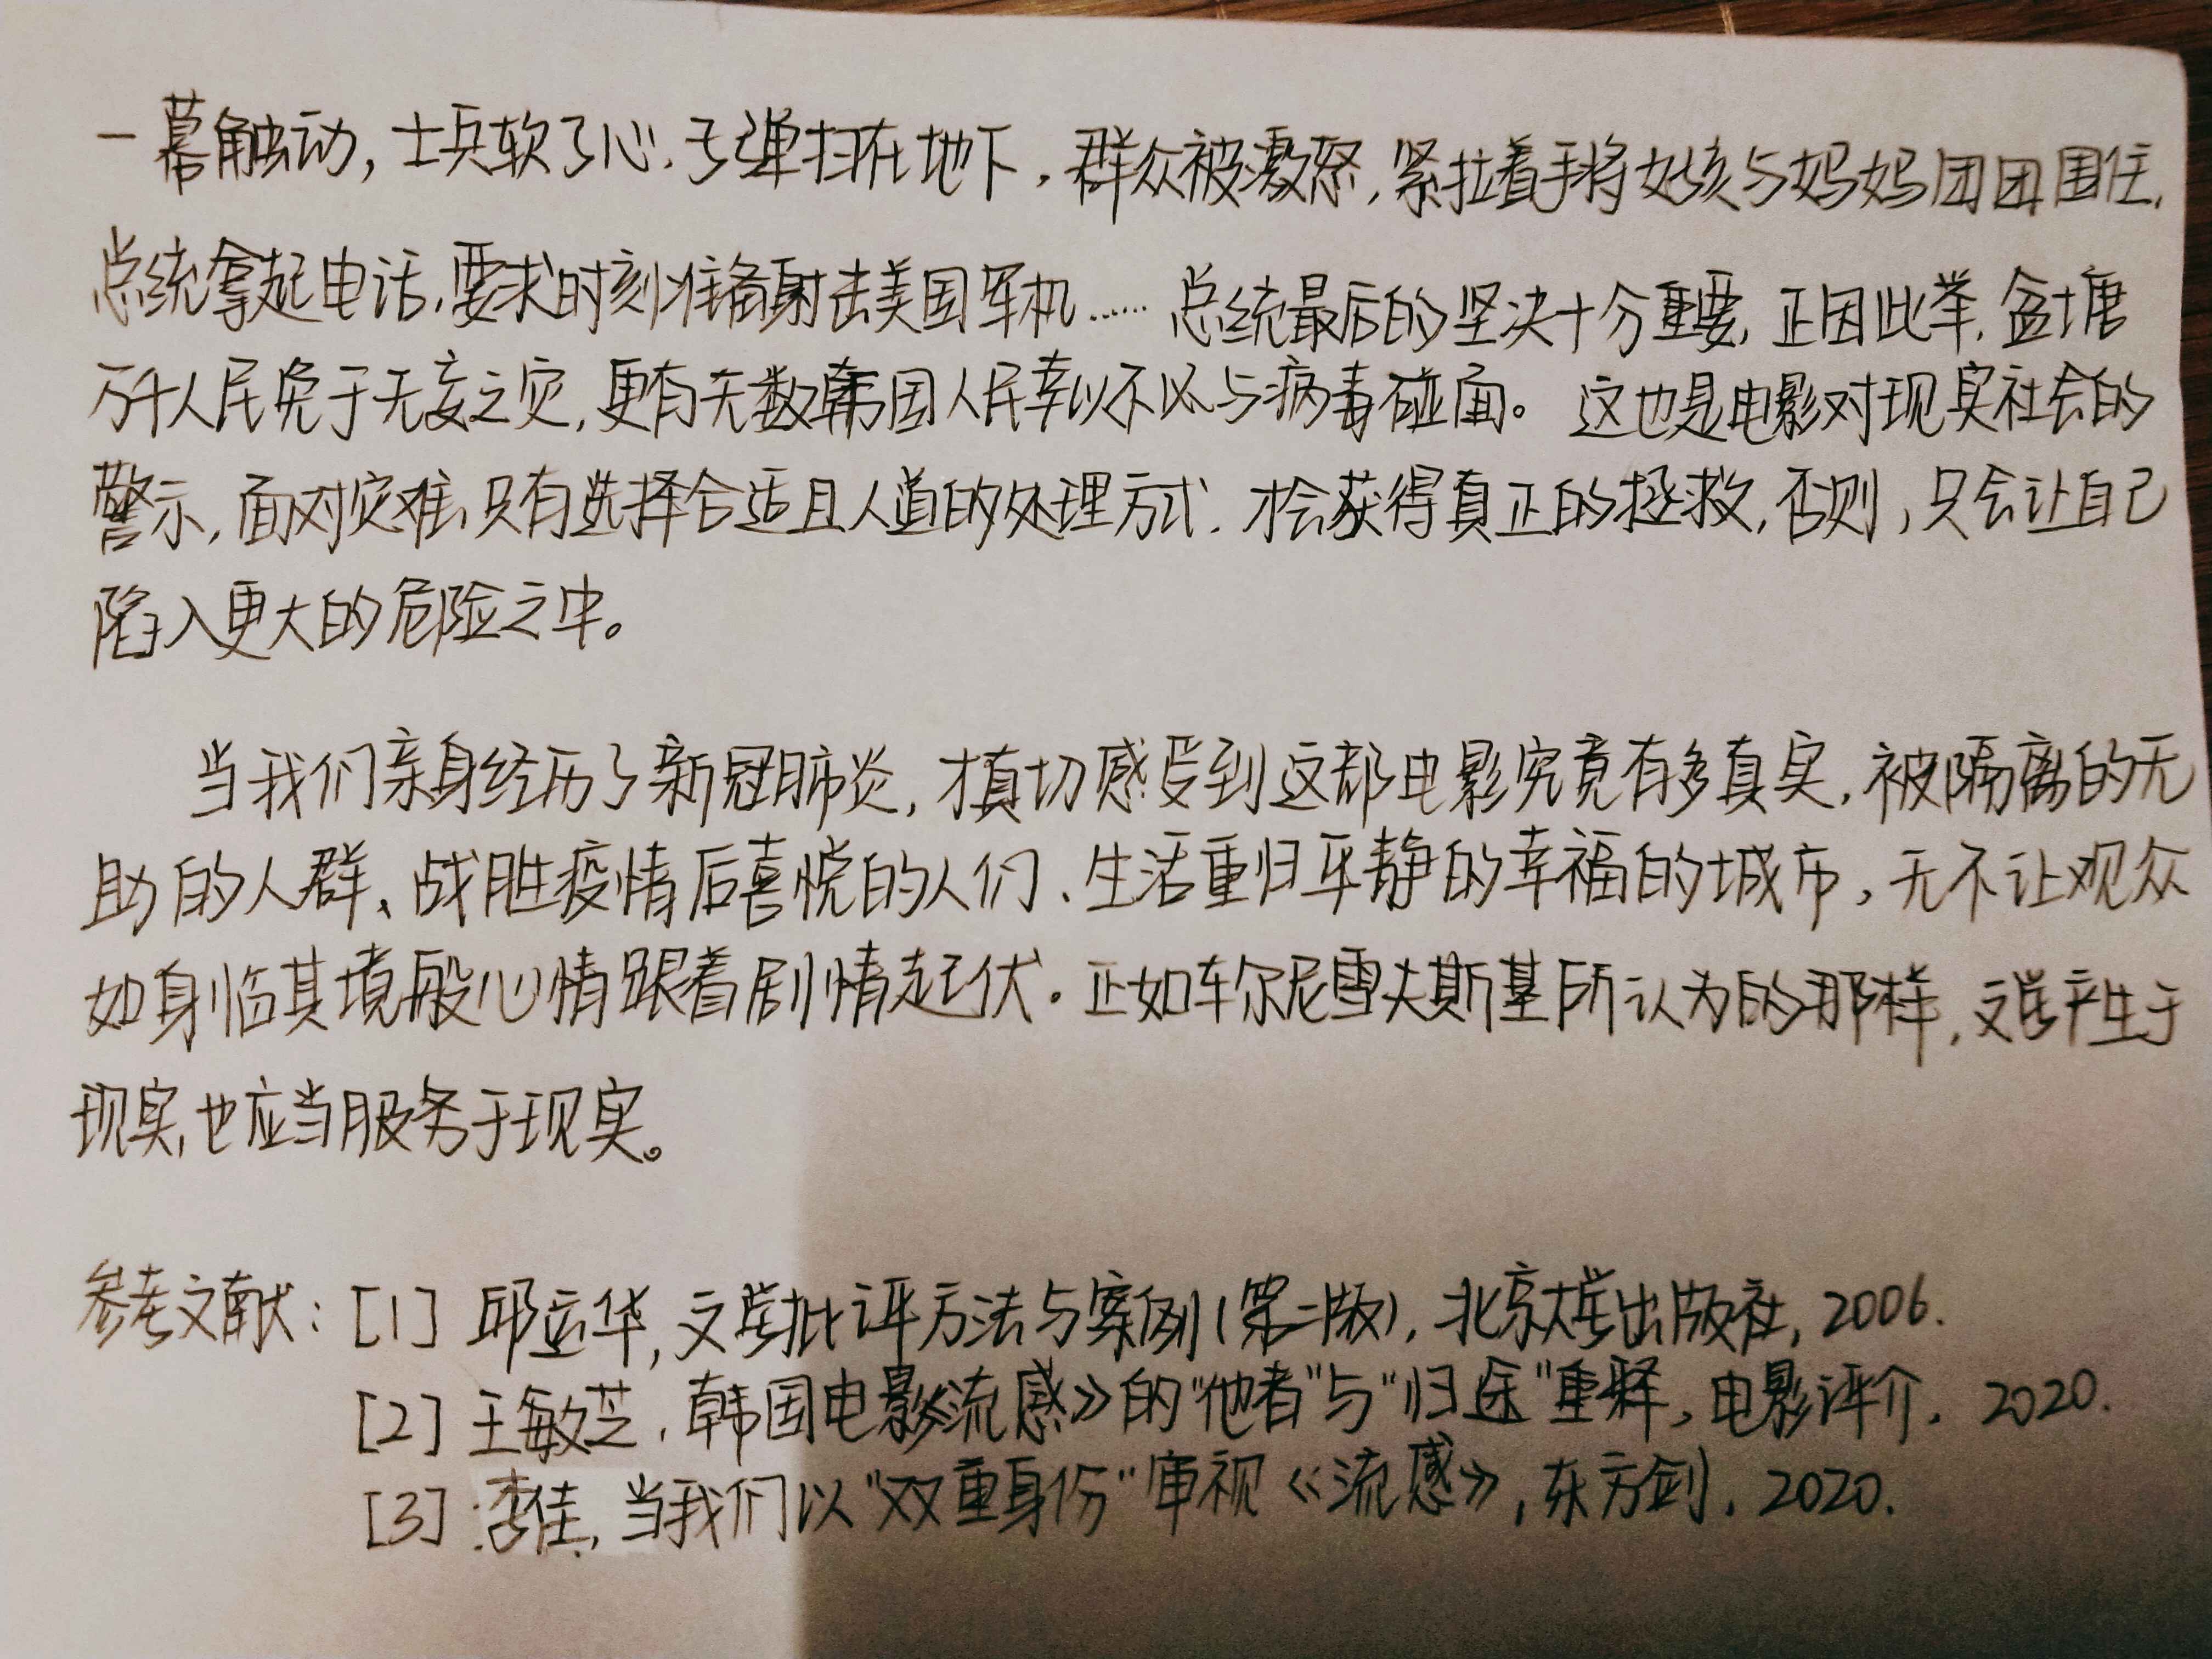 一幕触动，士兵软了心，子弹扫在地下，群众被激怒，紧拉着手将女孩与妈妈团团围住，
总统拿起电话，要求时刻准备射击美国军机……总统最后的坚决十分重要，正因此举，盆塘
万千人民免于无妄之灾，更有无数韩国人民幸以不必与病毒碰面。这也是电影对现实社会的
警示，面对灾难，只有选择合适且人道的处理方式，才会获得真正的拯救，否则，只会让自己
陷入更大的危险之中。
当我们亲身经历了新冠肺炎，才真切感受到这部电影究竟有多真实，被隔离的无
助的人群、战胜疫情后喜悦的人们、生活重归平静的幸福的城市，无不让观众
如身临其境般心情跟着剧情起伏。正如车尔尼雪夫斯基所认为的那样，文学产生于
现实，也应当服务于现实。
参考文献：[1] 邱运华，文学批评方法与案例(第二版)，北京大学出版社，2006.
[2] 王敏芝，韩国电影《流感》的“他者”与“归途”重释，电影评介，2020.
[3] 李佳，当我们以“双重身份”审视《流感》，东方剑，2020.